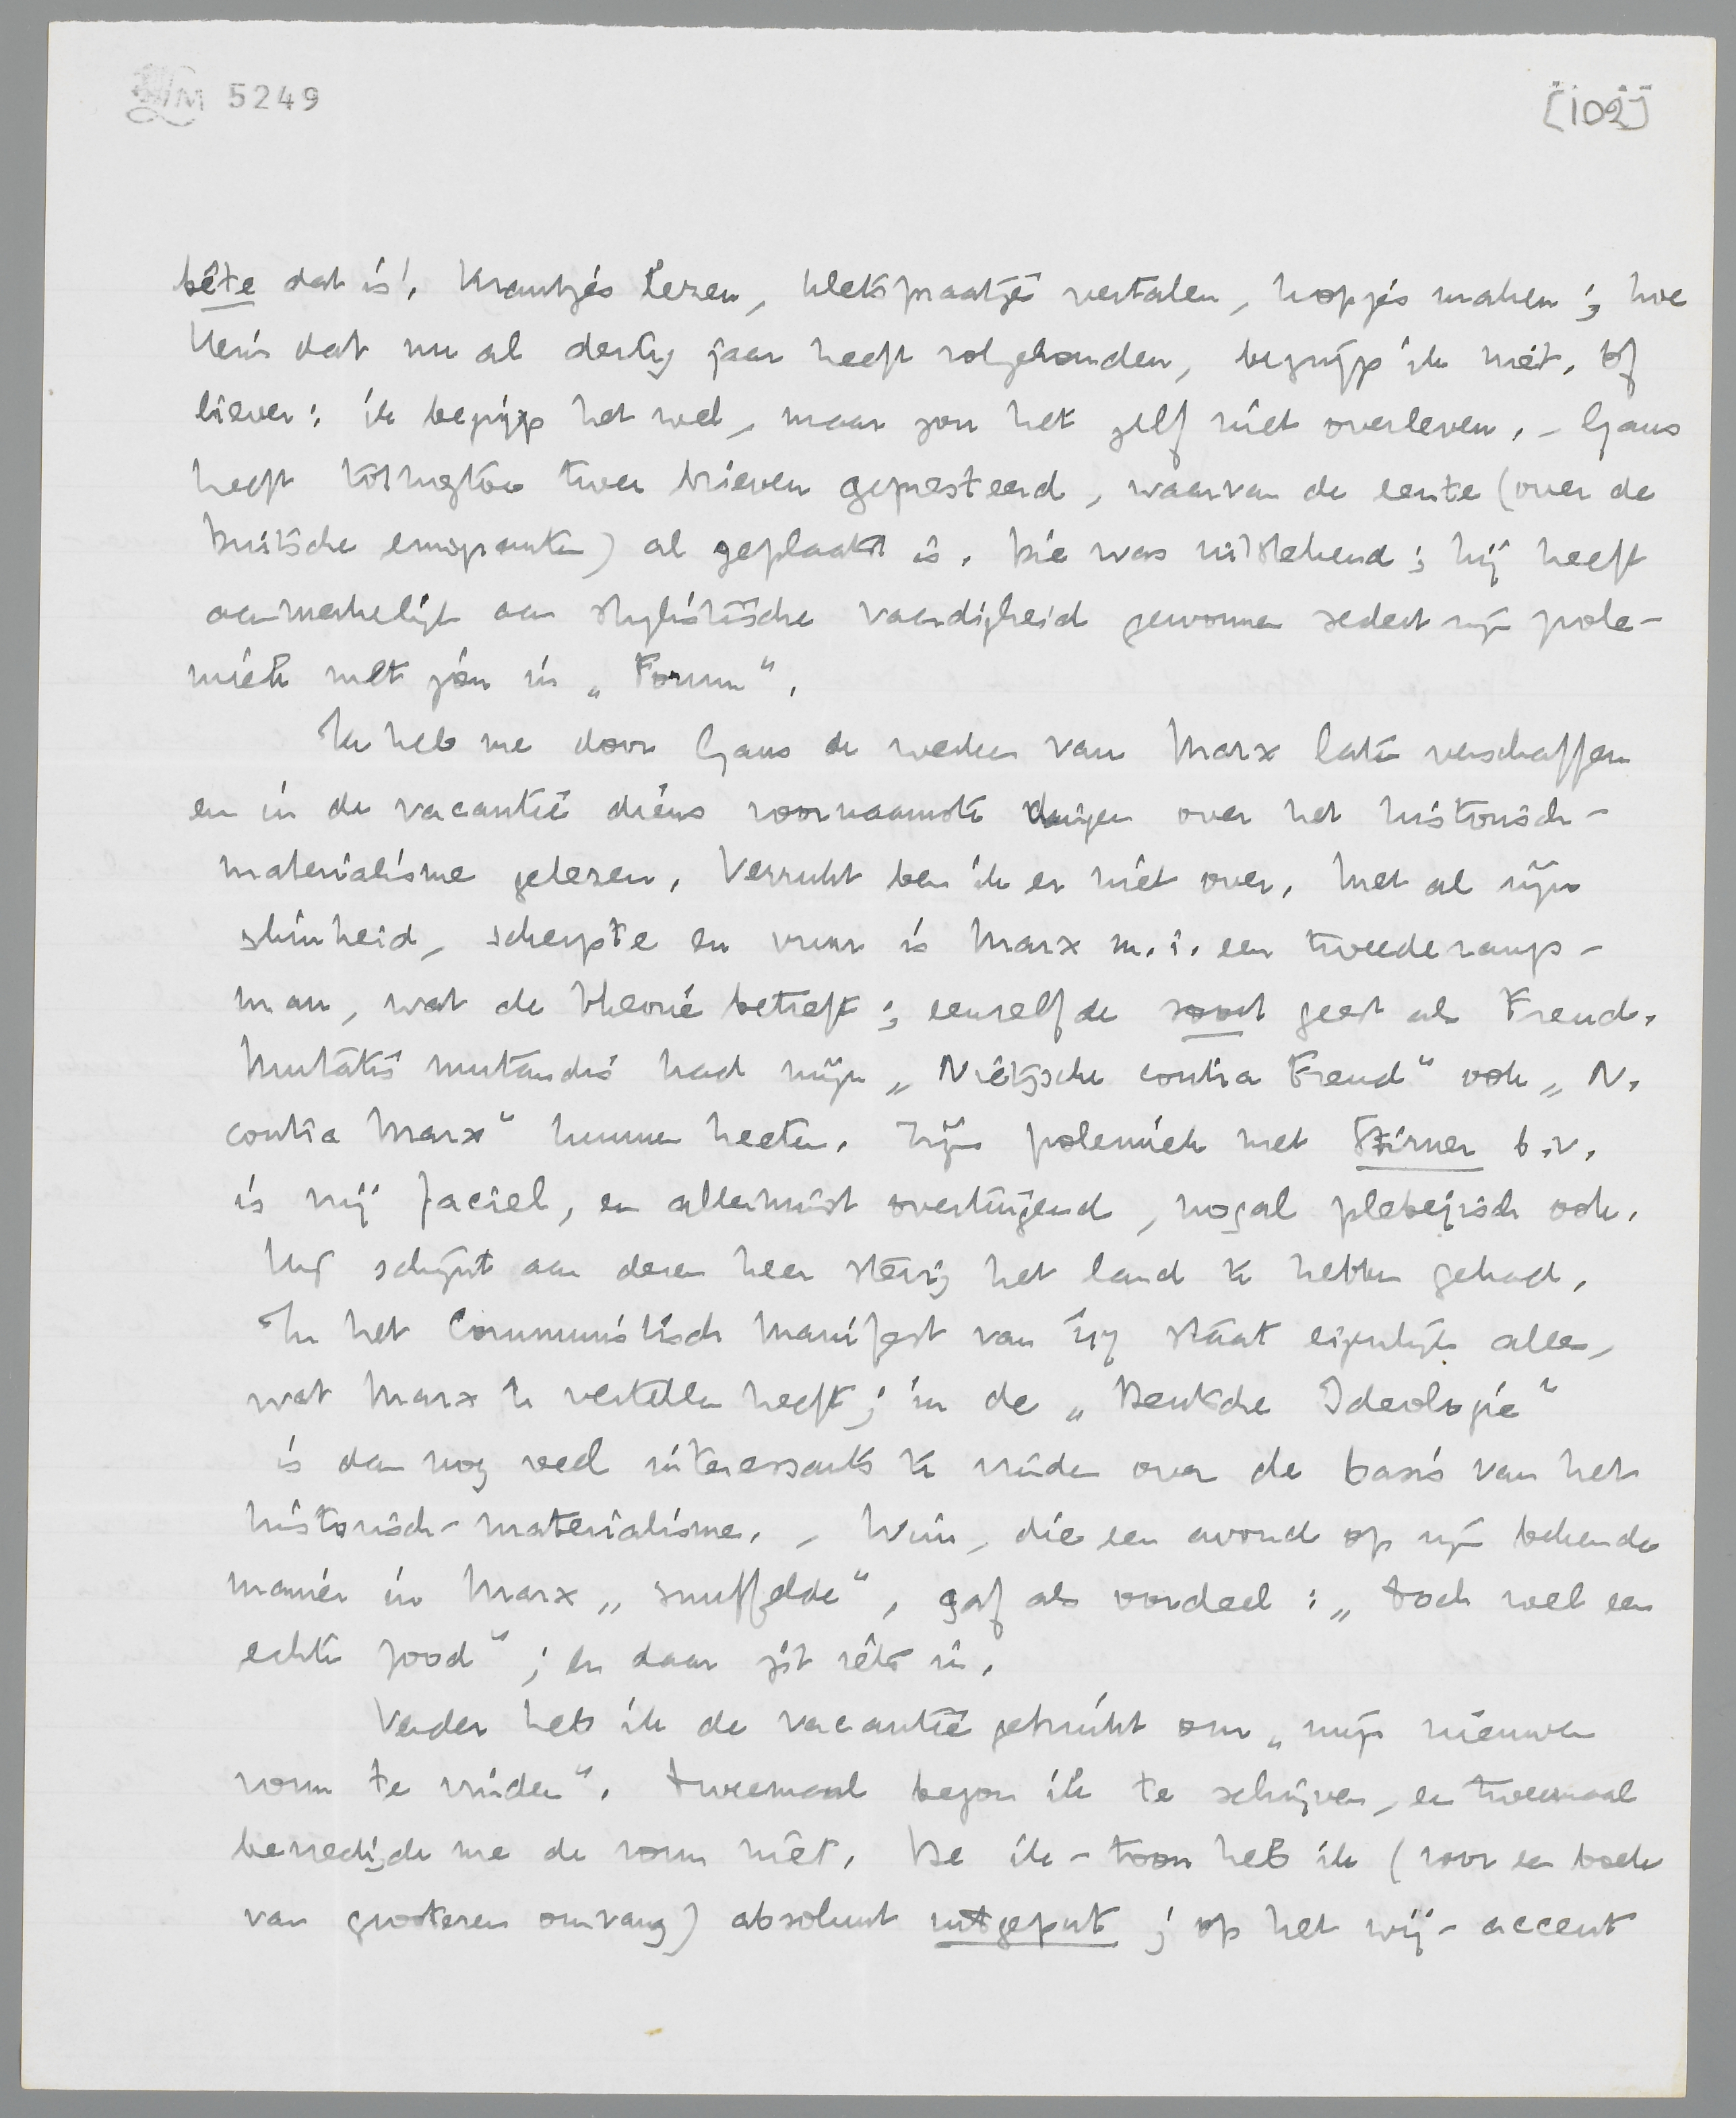 LM 5249
[102]
bête dat is! Krantjes lezen, kletspraatjes vertalen, kopjes maken; hoe
dat nu al dertig jaar heeft volgehouden, begrijp ik niet. Of
liever: ik begrijp het wel, maar zou het zelf niet overleven. – Gans
heeft tot nog toe twee brieven gepresteerd, waarvan de eerste (over de
Duitsche emigranten) al geplaatst is. Die was uitstekend; hij heeft
aanmerkelijk aan stylistische vaardigheid gewonnen sedert zijn pole-
miek met jou in „Forum".
Ik heb me door Gans de werken van Marx laten verschaffen
en in de vacantie diens voornaamste dingen over het historisch-
materialisme gelezen. Verrukt ben ik er niet over. Met al zijn
slimheid, scherpte en vuur is Marx m.i. een tweederangs-
man, wat de theorie betreft; eenzelfde soort geest als Freud.
Mutatis mutandis had mijn „Nietzsche contra Freud" ook „N.
contra Marx" kunnen heeten. Zijn polemiek met Stirner b.v.
is mij faciel, en allerminst overtuigend, nogal plebejisch ook.
Hij schijnt aan dezen heer stevig het land te hebben gehad.
In het Communistisch Manifest van staat eigenlijk alles,
wat Marx te vertellen heeft; in de „Deutsche Ideologie"
is dan nog veel interessants te vinden over de basis van het
historisch-materialisme. – Wim, die een avond op zijn bekende
manier in Marx „snuffelde", gaf als oordeel: „Toch wel een
echte jood"; en daar zit iets in.
Verder heb ik de vacantie gebruikt om „mijn nieuwen
vorm te vinden". Tweemaal begon ik te schrijven, en tweemaal
bevredigde me de vorm niet. De ik-toon heb ik (voor een boek
van grooteren omvang) absoluut uitgeput; op het wij-accent